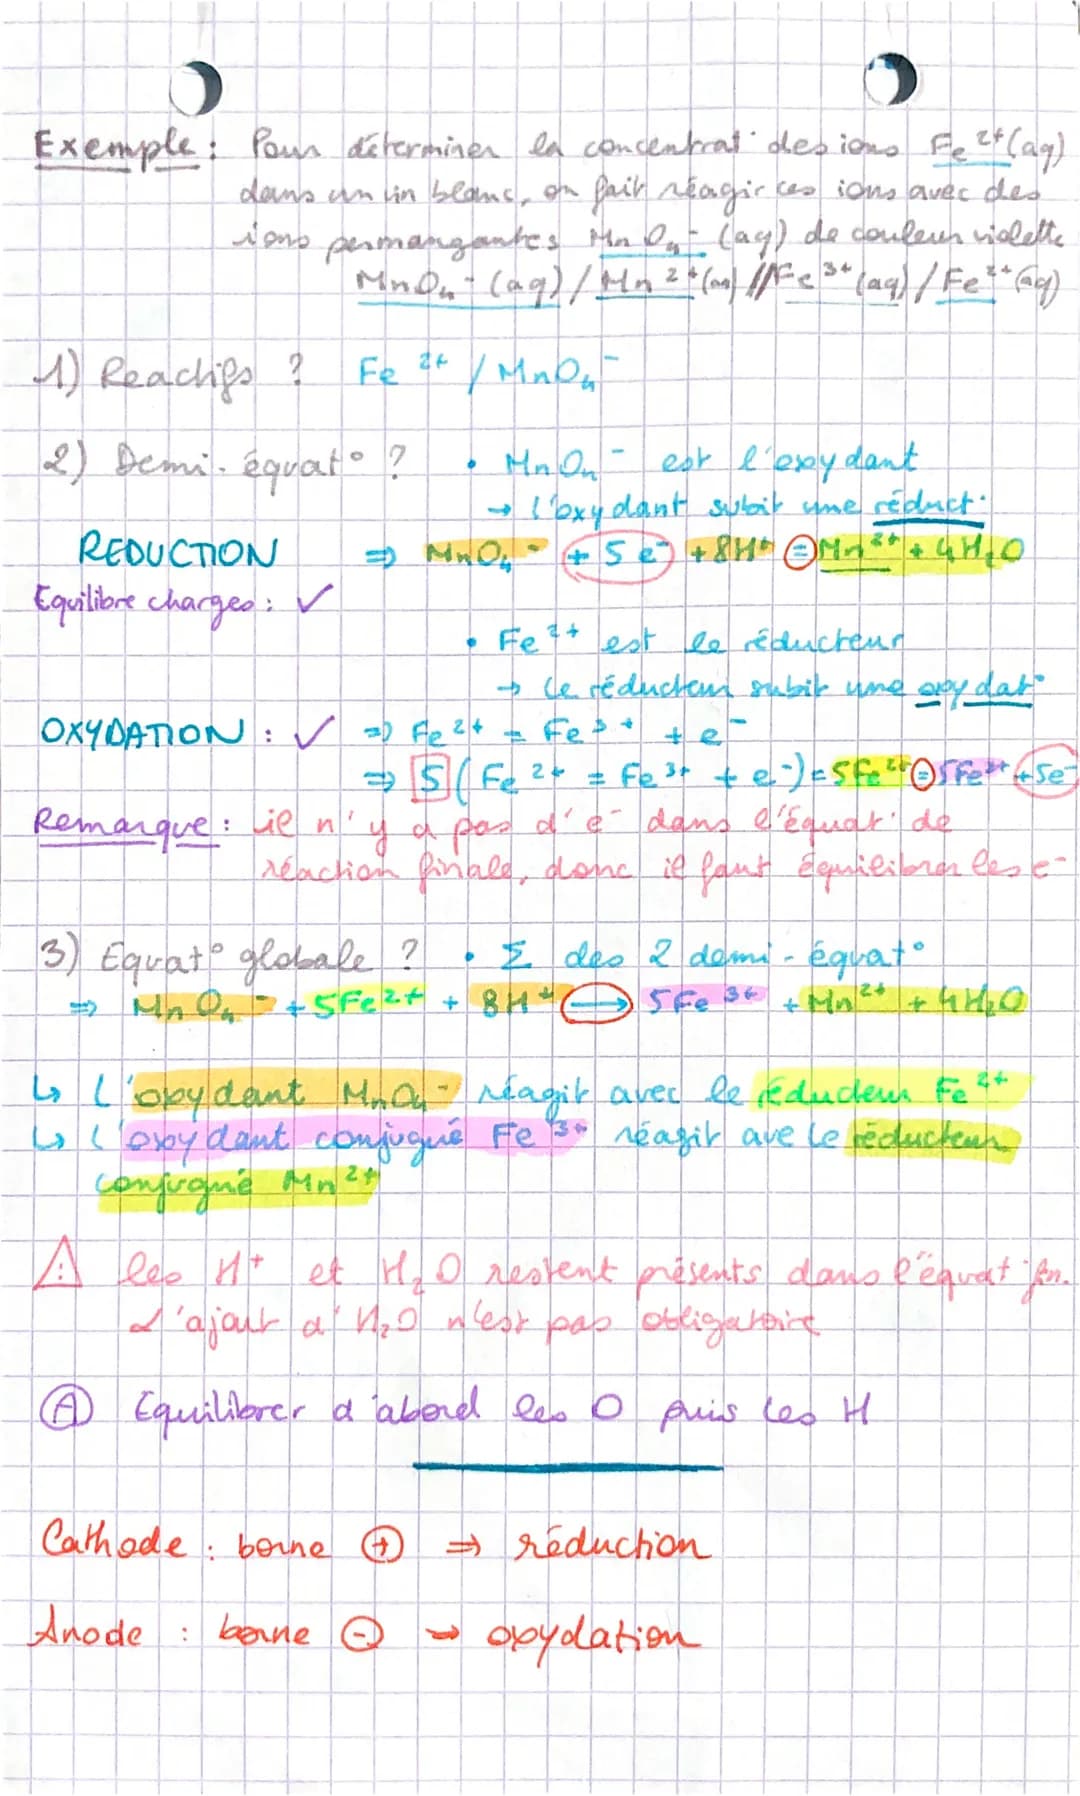 Exemple : Pour déterminer la concentrat° des ions Fe²⁺(aq)
dans un vin blanc, on fait réagir ces ions avec des
ions permangantes MnO₄⁻ (aq) de couleur violette
MnO₄⁻ (aq) / Mn²⁺(aq) // Fe³⁺ (aq) / Fe²⁺(aq)
1) Reactifs ? Fe²⁺ / MnO₄⁻
2) Demi-équat° ? • MnO₄⁻ est l'oxydant
→ l'oxydant subit une réduct°
REDUCTION ⇒ MnO₄⁻ + 5 e⁻ + 8H⁺ = Mn²⁺ + 4H₂O
Equilibre charges : ✓
• Fe²⁺ est le réducteur
→ le réducteur subit une oxydat°
OXYDATION : ✓ ⇒ Fe²⁺ = Fe³⁺ + e⁻
⇒ 5 ( Fe²⁺ = Fe³⁺ + e⁻) = 5Fe²⁺ = 5Fe³⁺ + 5e⁻
Remarque : il n'y a pas d'e⁻ dans l'équat° de
réaction finale, donc il faut équilibrer les e⁻
3) Equat° globale ? • Σ des 2 demi-équat°
⇒ MnO₄⁻ + 5Fe²⁺ + 8H⁺ → 5Fe³⁺ + Mn²⁺ + 4H₂O
↳ L'oxydant MnO₄⁻ réagit avec le réducteur Fe²⁺
↳ L'oxydant conjugué Fe³⁺ réagit ave le réducteur
conjugué Mn²⁺
⚠ les H⁺ et H₂O restent présents dans l'équat° fin.
L'ajout d'H₂O n'est pas obligatoire
Ⓐ Equilibrer d'abord les O puis les H
Cathode : borne ⊕ ⇒ réduction
Anode : borne ⊖ → oxydation